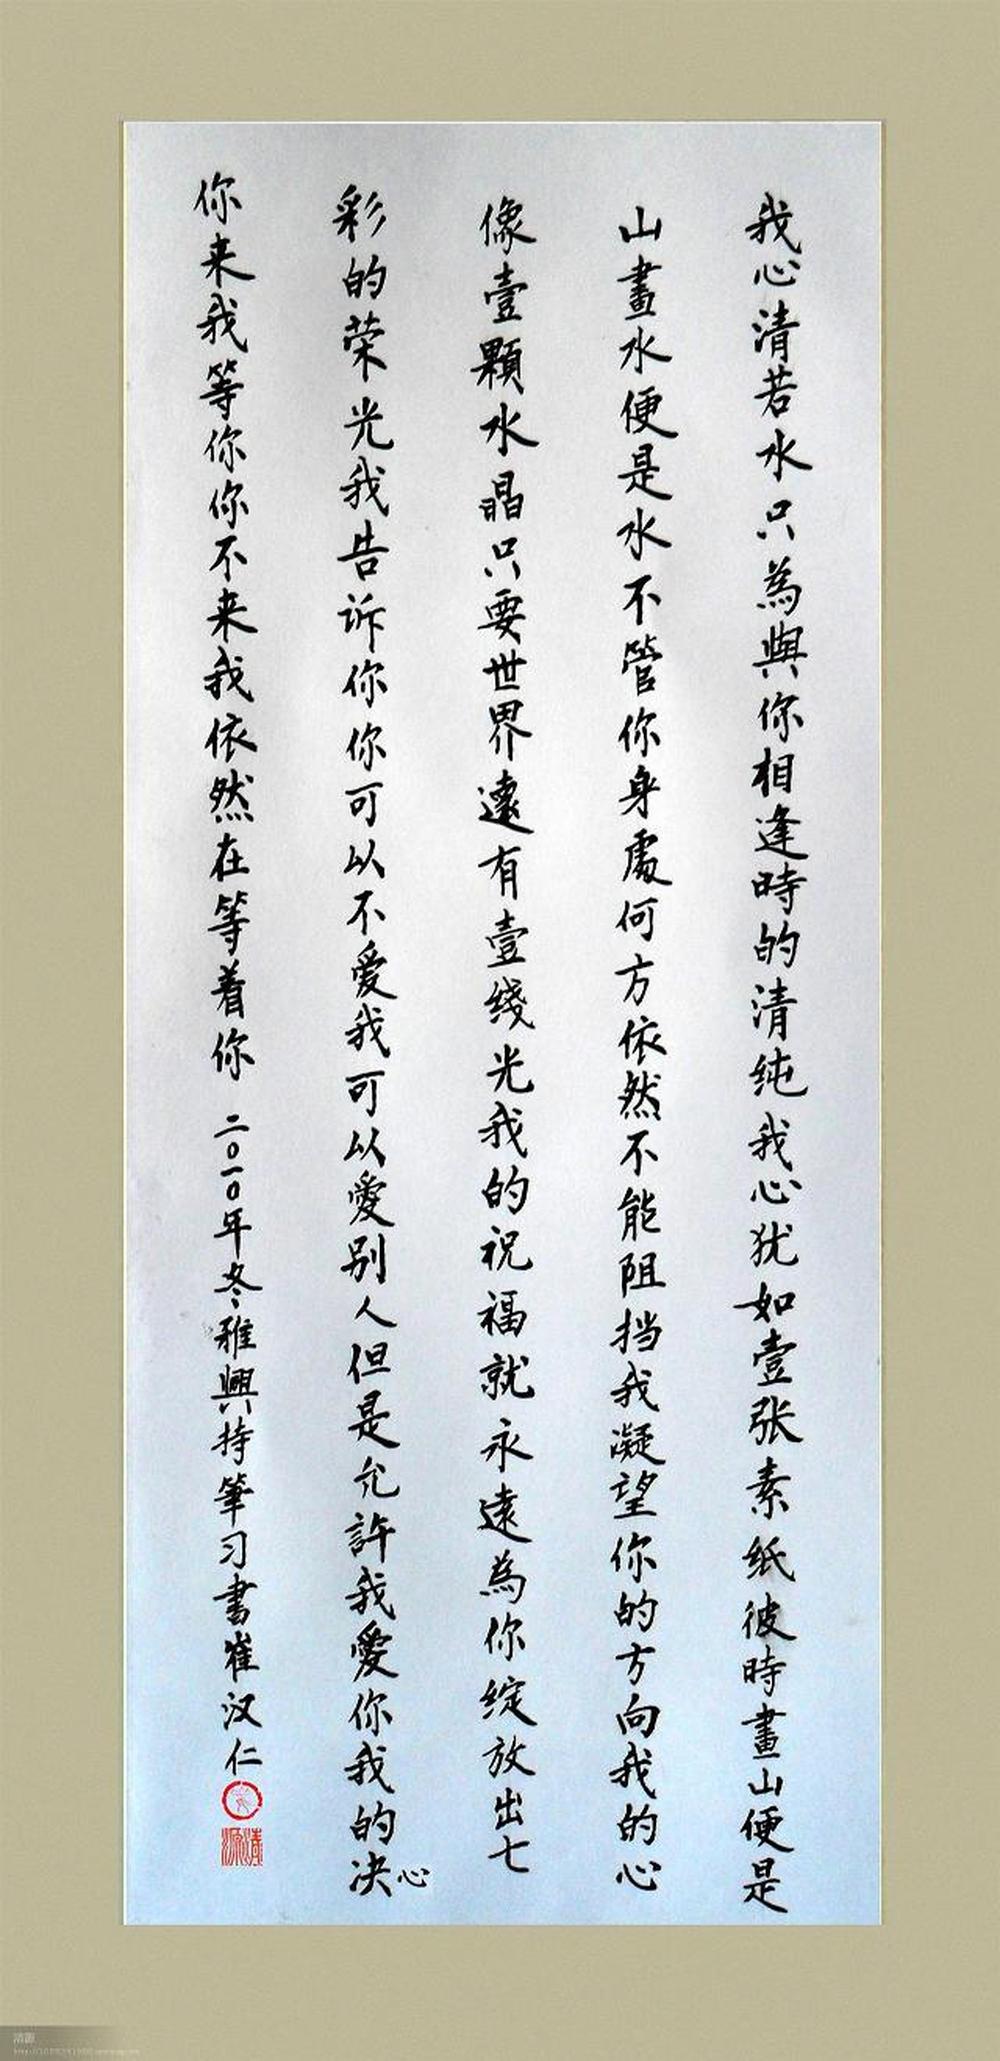 我心清若水只為與你相逢時的清纯我心犹如壹张素纸彼時畫山便是
山畫水便是水不管你身處何方依然不能阻挡我凝望你的方向我的心
像壹顆水晶只要世界遠有壹綫光我的祝福就永遠為你绽放出七
彩的荣光我告诉你你可以不爱我可以愛别人但是允許我愛你我的决心
你来我等你你不来我依然在等着你 二〇一〇年冬雅興持筆习书崔汉仁
清源